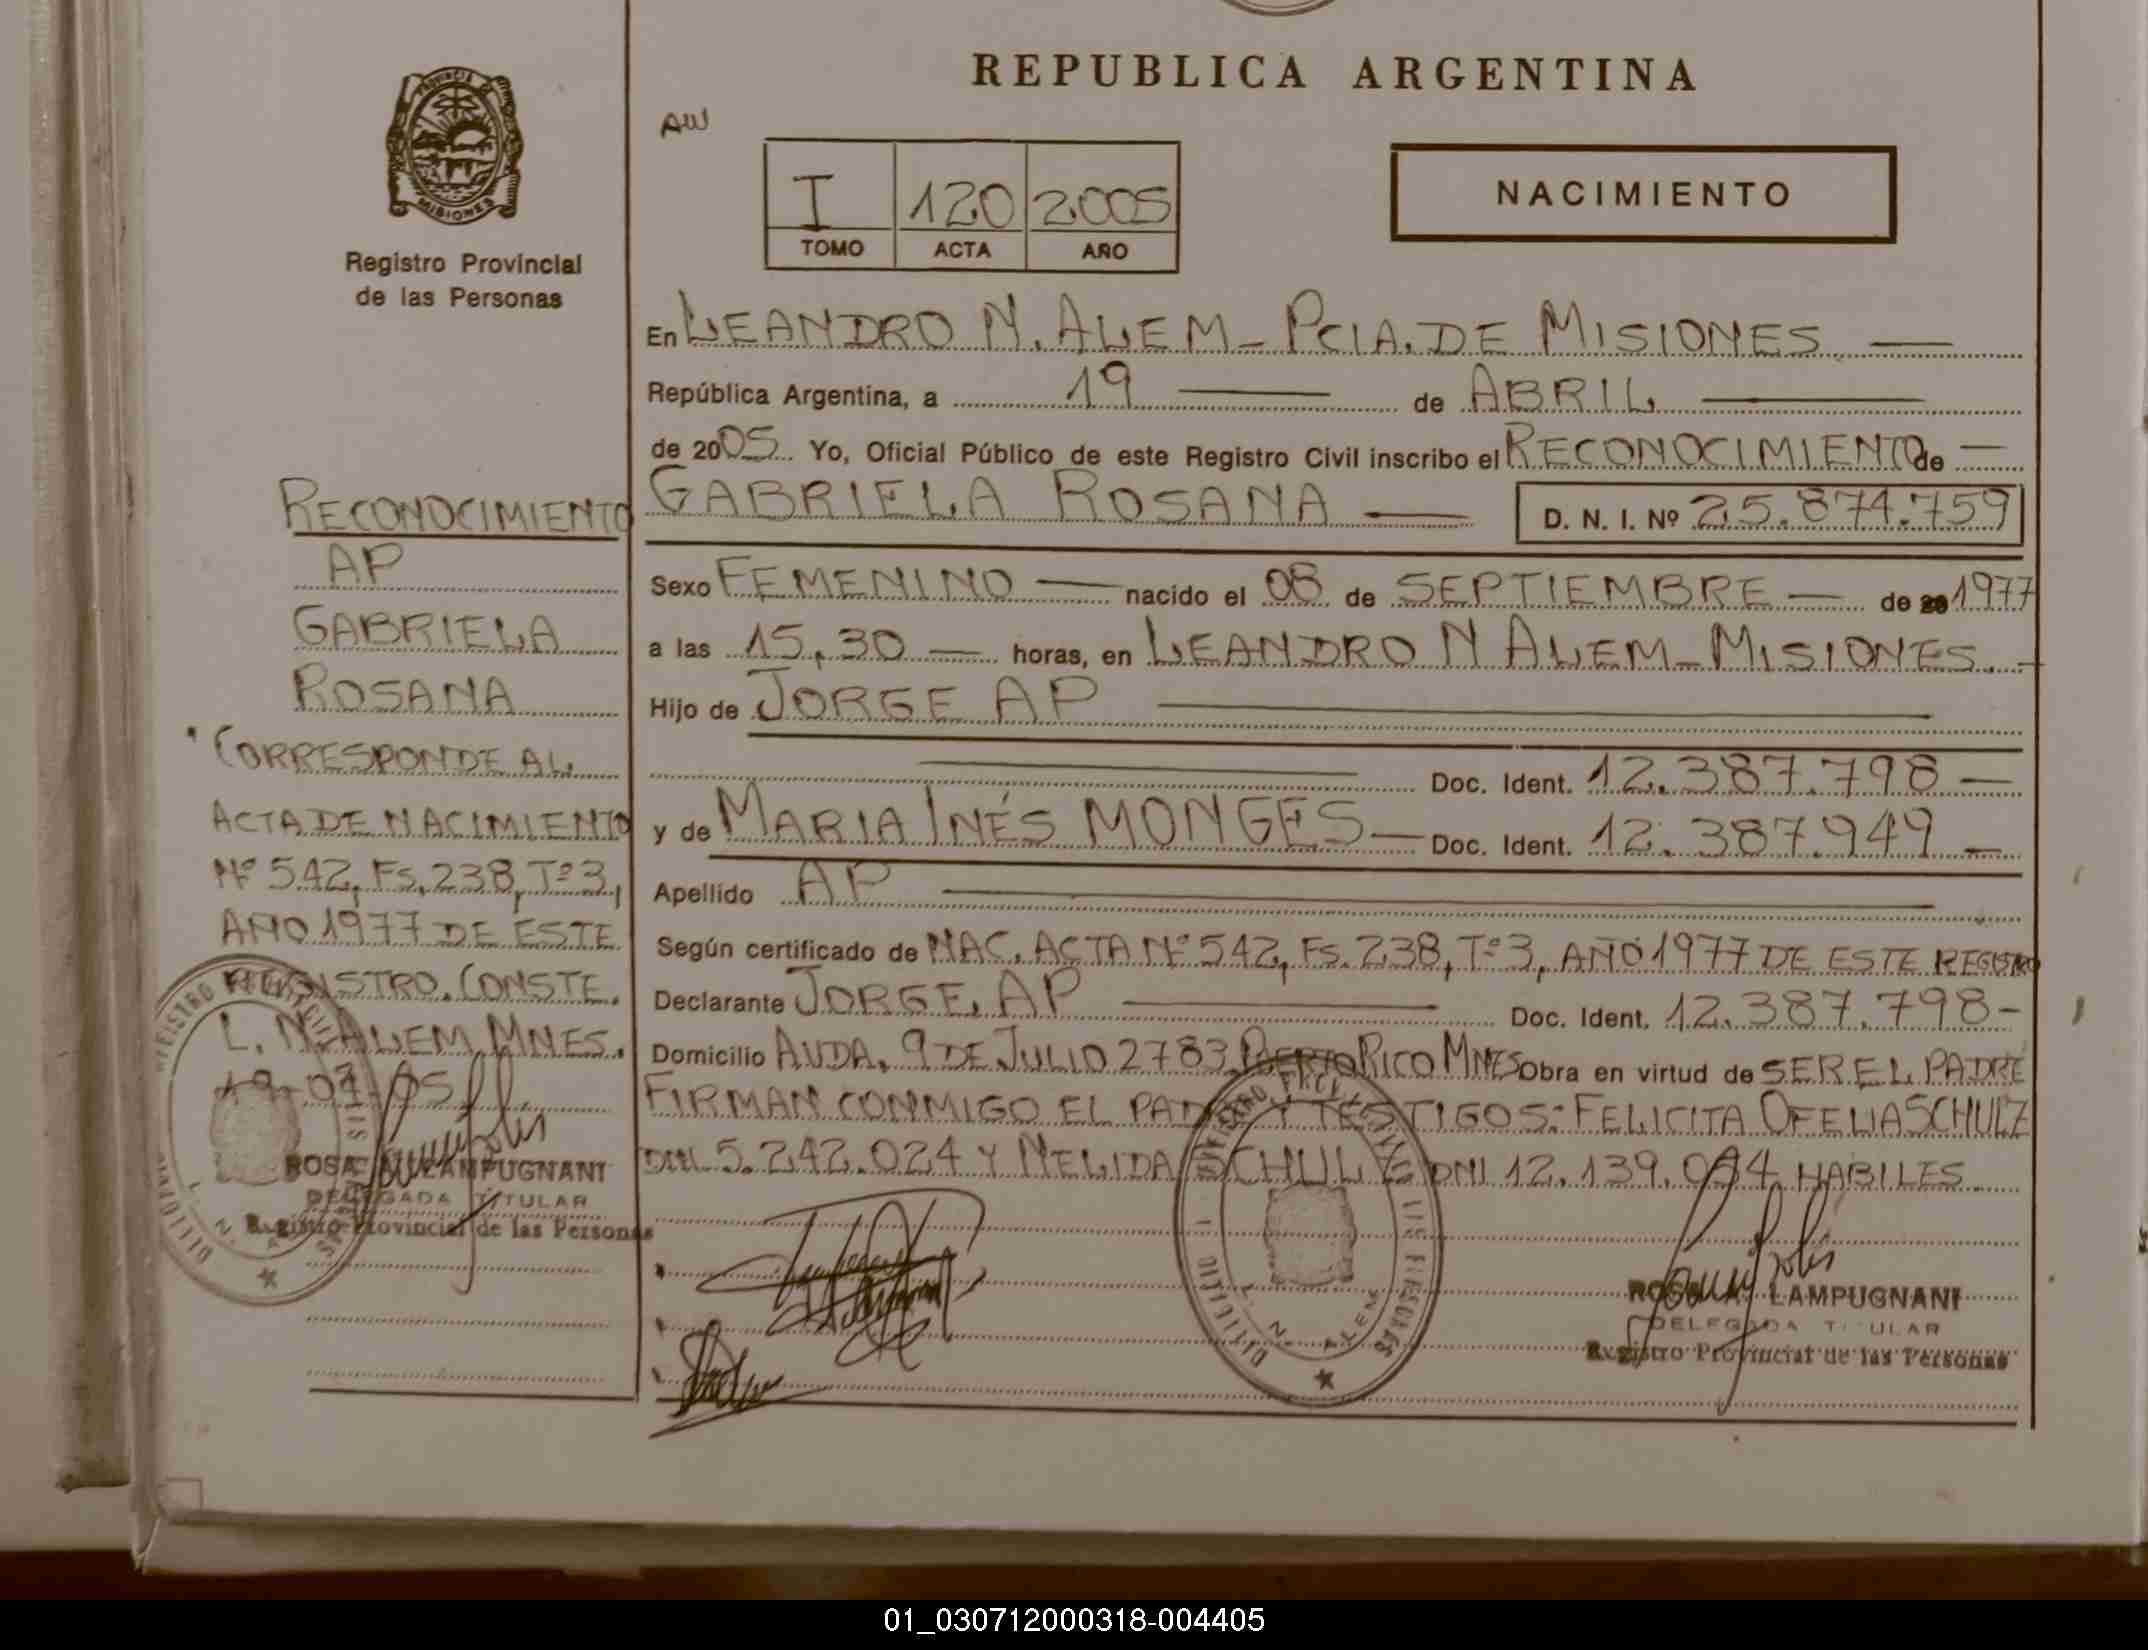 REPUBLICA ARGENTINA
PROVINCIA DE MISIONES
Registro Provincial
de las Personas
AW
I 120 2005
TOMO ACTA AÑO
NACIMIENTO
En LEANDRO N. ALEM - PCIA. DE MISIONES
República Argentina, a 19 de ABRIL
de 2005 Yo, Oficial Público de este Registro Civil inscribo el RECONOCIMIENTO de
GABRIELA ROSANA D. N. I. Nº 25.874.759
Sexo FEMENINO nacido el 08 de SEPTIEMBRE de 1977
a las 15,30 horas, en LEANDRO N ALEM - MISIONES.
Hijo de JORGE AP
Doc. Ident. 12.387.798
y de MARIA INÉS MONGES Doc. Ident. 12.387.949
Apellido AP
Según certificado de NAC. ACTA Nº 542, Fs. 238, Tº 3, AÑO 1977 DE ESTE REGISTRO
Declarante JORGE, AP Doc. Ident. 12.387.798-
Domicilio AVDA. 9 DE JULIO 2783 PUERTO RICO MNES Obra en virtud de SER EL PADRE
FIRMAN CONMIGO EL PADRE Y TESTIGOS: FELICITA OFELIA SCHULZ
DNI 5.242.024 Y NELIDA SCHULZ DNI 12.139.094 HABILES.
ROSA LAMPUGNANI
DELEGADA TITULAR
Registro Provincial de las Personas
RECONOCIMIENTO
AP
GABRIELA
ROSANA
CORRESPONDE AL
ACTA DE NACIMIENTO
Nº 542, Fs. 238, Tº 3,
AÑO 1977 DE ESTE
REGISTRO. CONSTE.
L. N. ALEM, MNES.
19-04-05
ROSA LAMPUGNANI
DELEGADA TITULAR
Registro Provincial de las Personas
01_030712000318-004405